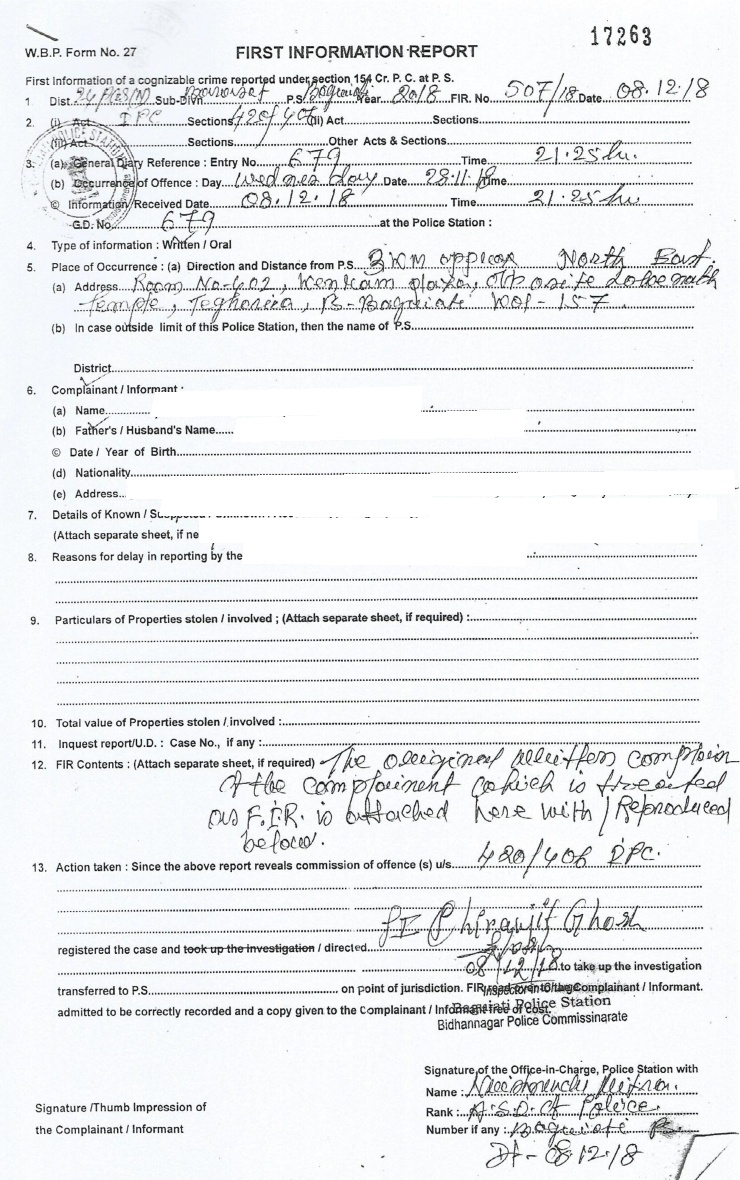 17263
W.B.P. Form No. 27
FIRST INFORMATION REPORT
First Information of a cognizable crime reported under section 154 Cr. P. C. at P. S.
1 Dist. 24 PGS/N Sub-Divn. Barasat P.S. Baguiati Year 2018 FIR. No 507/18 Date 08.12.18
2. (i) Act IPC Sections 420/406 (ii) Act Sections
(iii) Act Sections Other Acts & Sections
3. (a) General Diary Reference : Entry No. 679 Time 21.25 hr.
(b) Occurrence of Offence : Day Wednesday Date 28.11.18 Time
© Information Received Date 08.12.18 Time 21.25 hr
G.D. No. 679 at the Police Station :
4. Type of information : Written / Oral
5. Place of Occurrence : (a) Direction and Distance from P.S. 3 KM approx North East.
(a) Address Room No-402, plaza, Opposite Lokenath
Temple, Teghoria, PS-Baguiati Kol-157
(b) In case outside limit of this Police Station, then the name of P.S.
District
6. Complainant / Informant :
(a) Name
(b) Father's / Husband's Name
© Date / Year of Birth
(d) Nationality
(e) Address
7. Details of Known /
(Attach separate sheet, if ne
8. Reasons for delay in reporting by the
9. Particulars of Properties stolen / involved ; (Attach separate sheet, if required) :
10. Total value of Properties stolen / involved :
11. Inquest report/U.D. : Case No., if any :
12. FIR Contents : (Attach separate sheet, if required) The original written complain
of the complainent which is treated
as F.I.R. is attached here with / Reproduced
below.
13. Action taken : Since the above report reveals commission of offence (s) u/s. 420/406 IPC.
SI Chiranjit Ghosh
registered the case and took up the investigation / directed
08/12/18 to take up the investigation
transferred to P.S. on point of jurisdiction. FIR read over to the Complainant / Informant.
Inspector-in-Charge
admitted to be correctly recorded and a copy given to the Complainant / Informant free of cost.
Baguiati Police Station
Bidhannagar Police Commissinarate
Signature of the Office-in-Charge, Police Station with
Name :
Rank : A.S.I. of Police.
Signature /Thumb Impression of
the Complainant / Informant
Number if any : Baguiati PS
Dt- 08.12.18